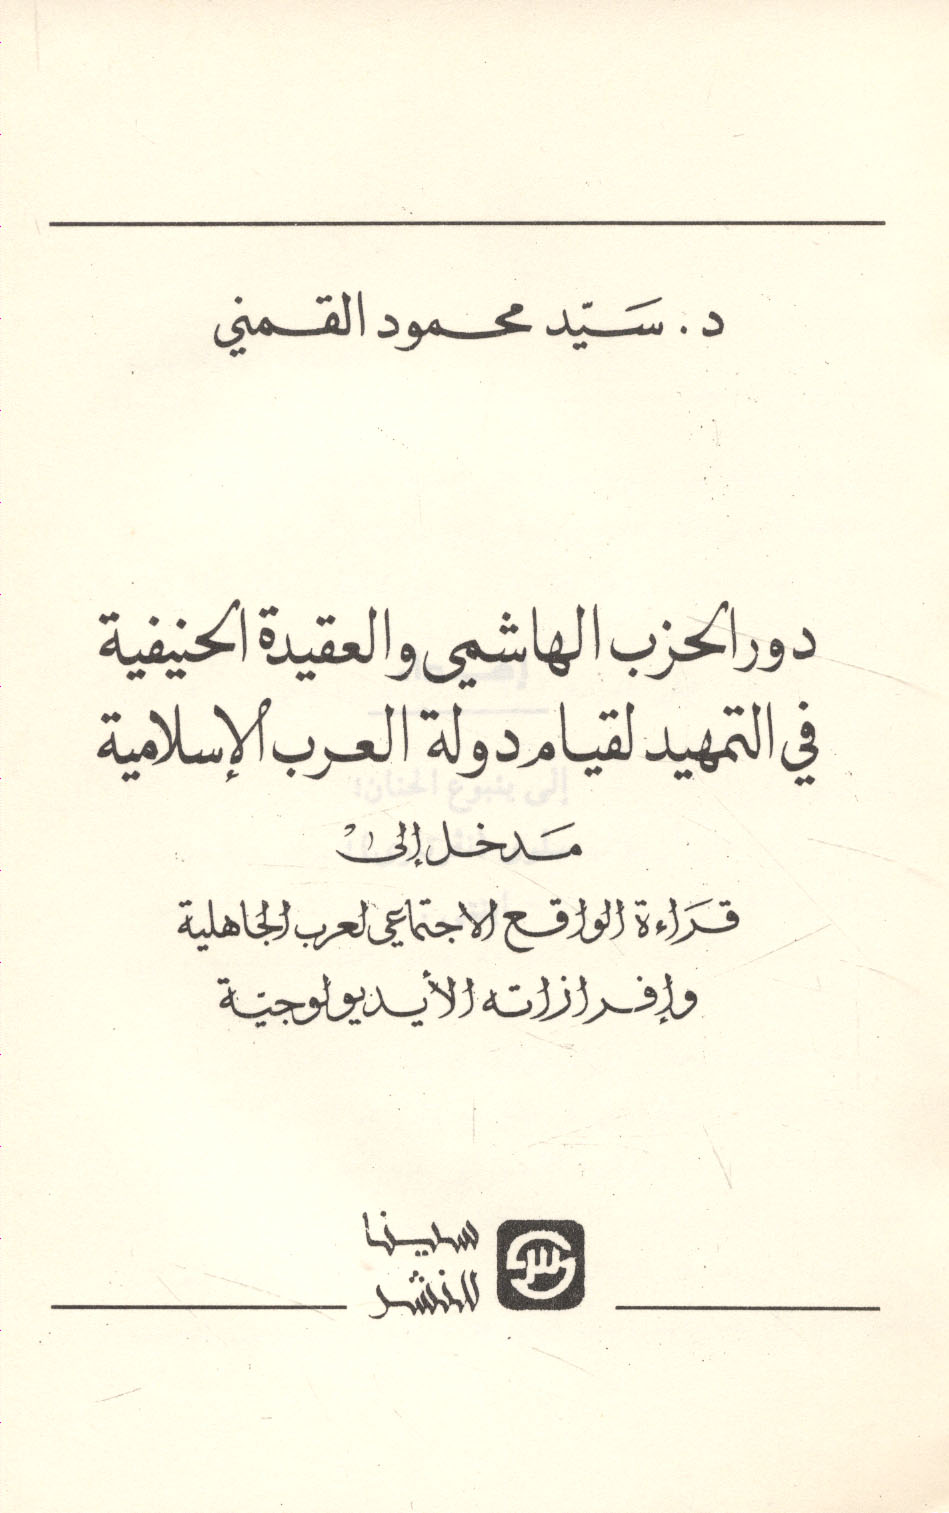 د. سَيّد محمود القمني
دور الحزب الهاشمي والعقيدة الحنيفية
في التمهيد لقيام دولة العرب الإسلامية
مَدخل إلىٰ
قرَاءة الواقع الاجتماعي لعرب الجاهلية
وإفرازاته الأيديولوجيّة
سينا
للنشر
إلى ينبوع الحنان؛